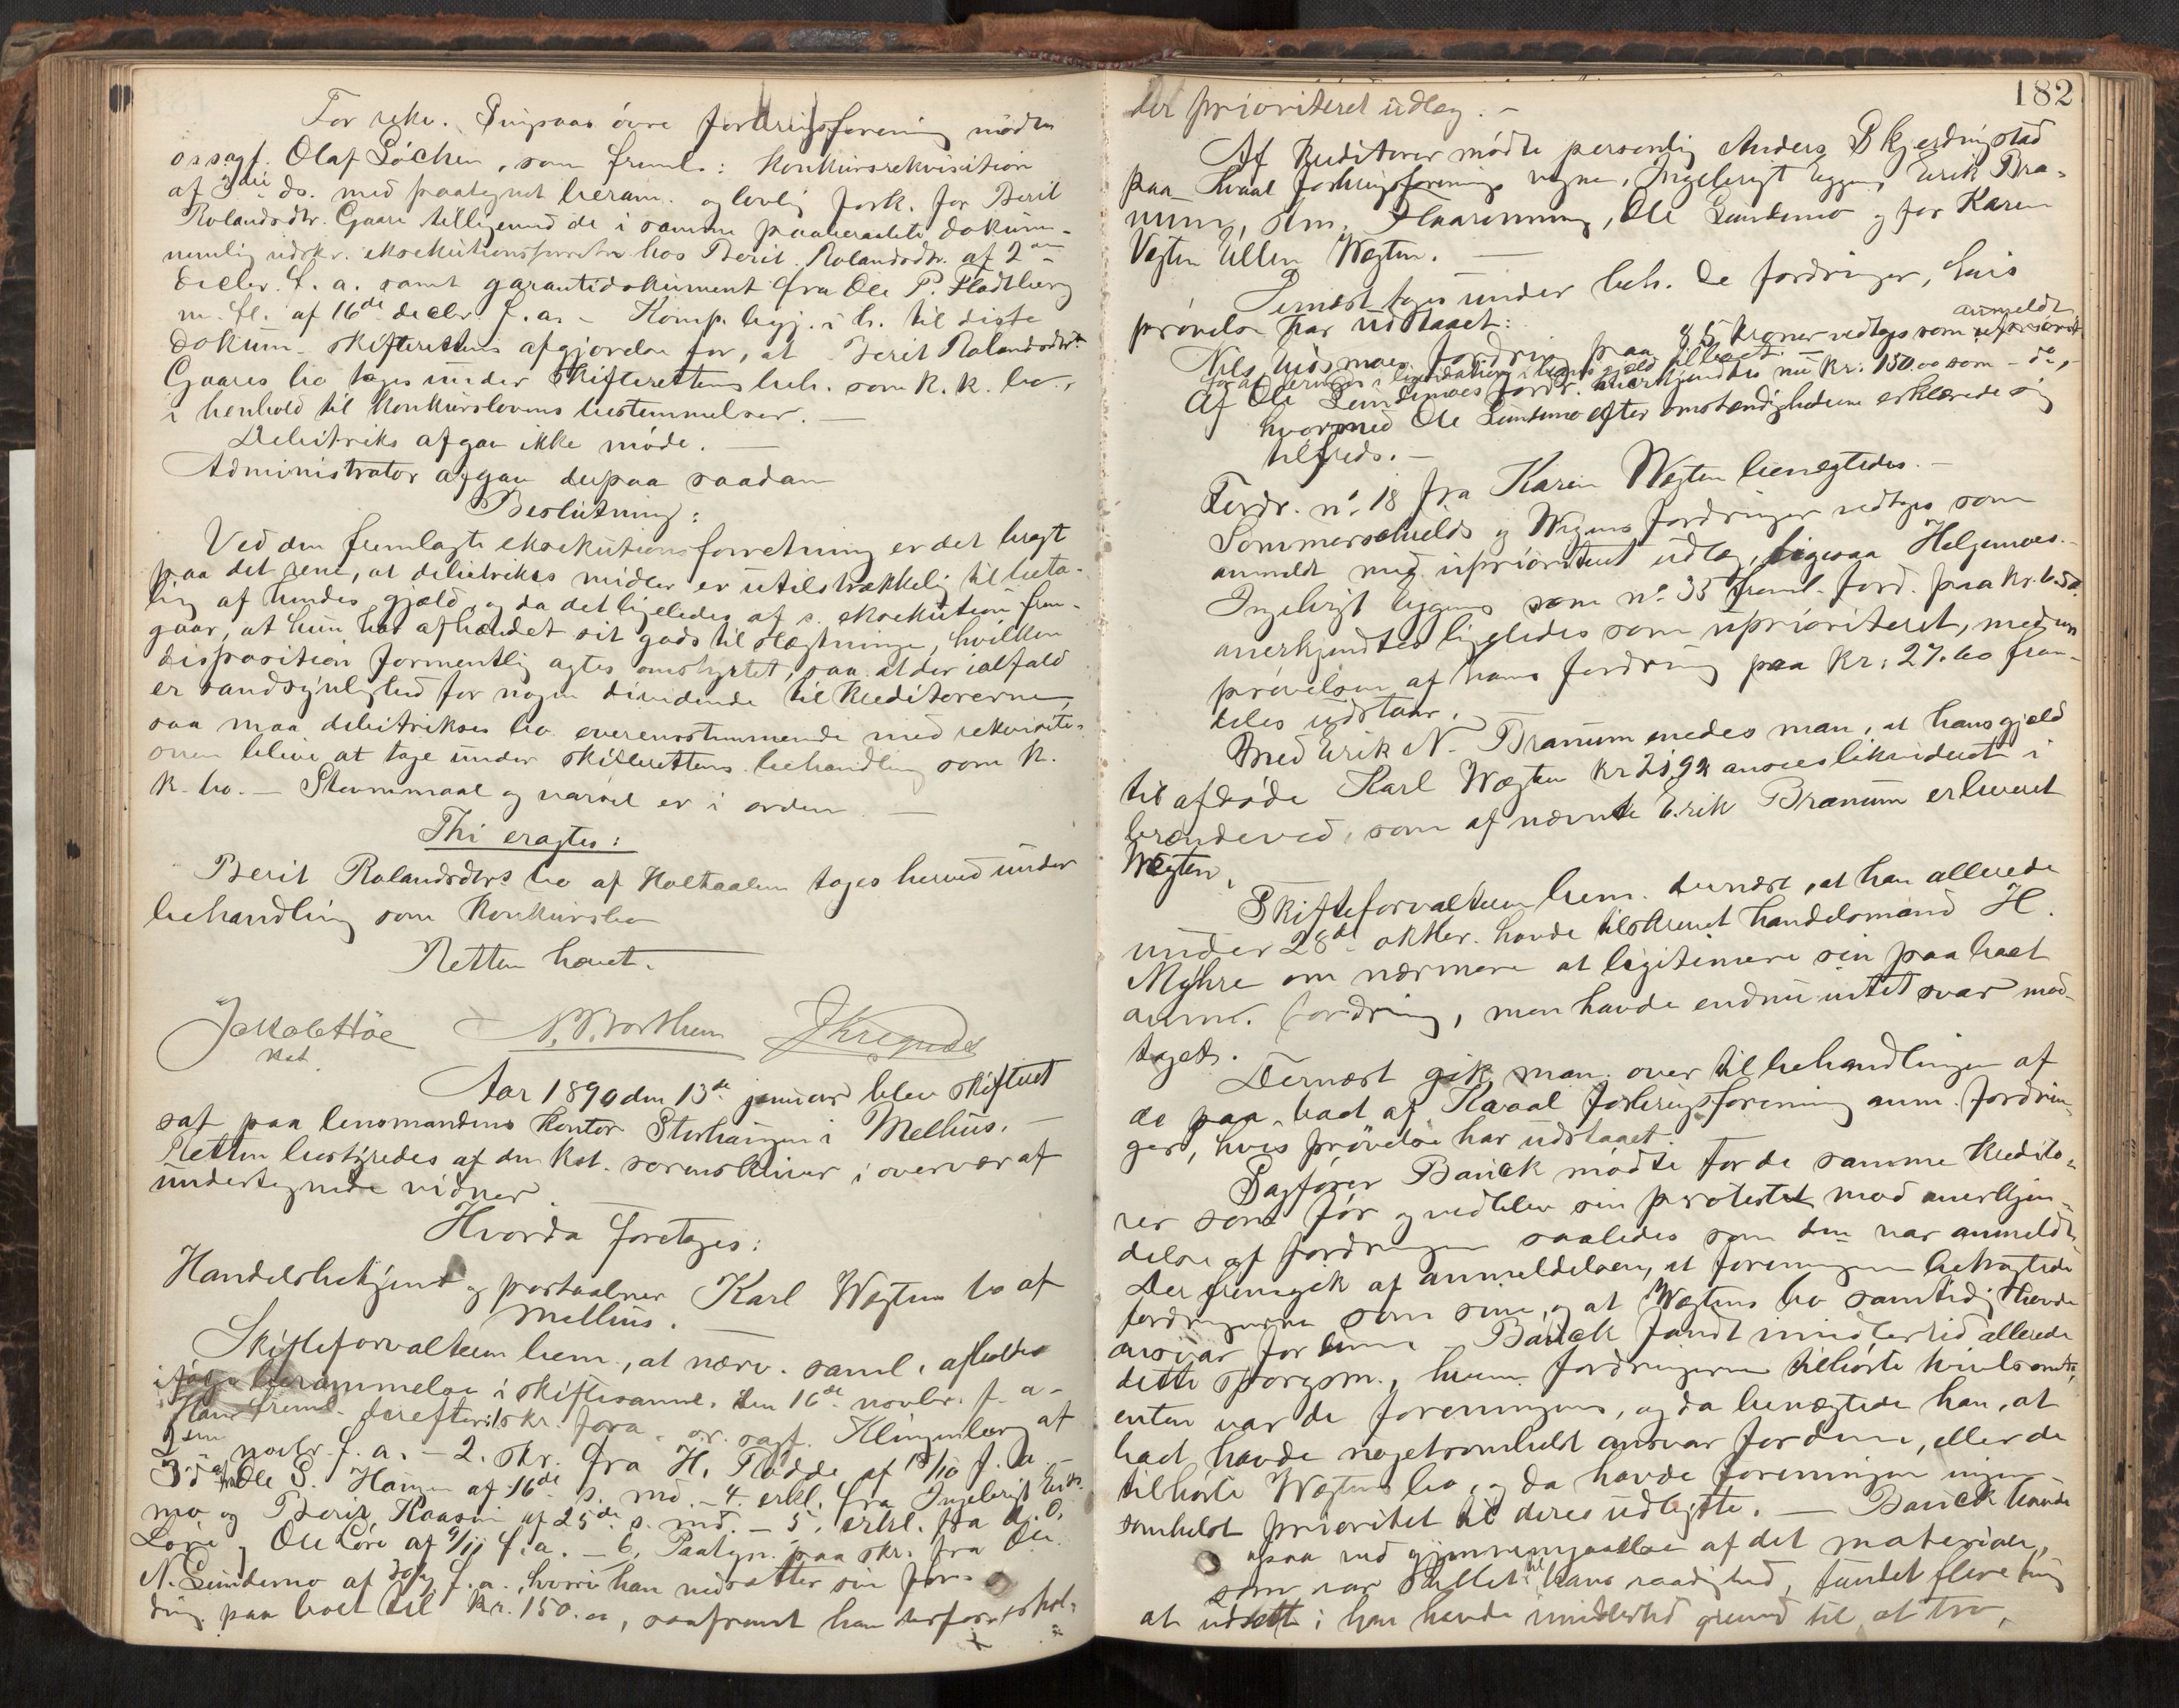 For rekv. Singsaas øvre forbrugsforening mødte
o.r.sagf. Olaf Løchen, som freml.: Konkursrekvisition
af 3die ds. med paategnet beram. og lovlig fork. for Berit
Rolandsdtr. Gaare tilligemed de i samme paaberaabte dokum.
nemlig udskr. eksekutionsforretn. hos Berit Rolandsdtr. af 2den
decbr. f. a. samt garantidokument fra Ole P. Fladtberg
m. fl. af 16de decbr. f. a. - Komp. begj. i h. til disse
dokum. skifterettens afgjørelse for, at Berit Rolandsdtr.
Gaares bo tages under skifterettens beh. som k. k. bo,
i henhold til konkurslovens bestemmelser. -
Debitriks afgav ikke møde. -
Administrator afgav derpaa saadan
Beslutning:
Ved den fremlagte eksekutionsforretning er det bragt
paa det rene, at debitrikes midler er utilstrækkelig til beta-
ling af hendes gjæld, og da det ligeledes af s. eksekution frem-
gaar, at hun har afhændet sit gods til slægtninge, hvilken
disposition formentlig agtes omstyrtet, saa at der ialfald
er sandsynlighed for nogen dividende til kreditorerne,
saa maa debitrikses bo overensstemmende med rekvisiti-
onen blive at tage under skifterettens behandling som k.
k. bo. - Stevnemaal og varsel er i orden -
Thi eragtes:
Berit Rolandsdtrs bo af Holtaalen tages herved under
behandling som konkursbo
Retten hævet.
Jakob Høe N. Borthen
kst.
Aar 1890 den 13de januar blev skifteret
sat paa lensmandens kontor Storhaugen i Melhus. -
Retten bestyredes af den kst. sorenskriver i overvær af
undertegnede vidner.
Hvorda foretoges:
Handelsbetjent og postaabner Karl Wegtens bo af
Melhus.
Skifteforvalteren bem., at nærv. saml. afholdes
ifølge berammelse i skiftesaml. den 16de novbr. f. a. -
Han freml. derefter: 1. skr. fra o.r. sagf. Klingenberg af
2den novbr. f. a. - 2. skr. fra H. Flødde af 18/10 f. a. -
3. do fra Ole S. Haugen af 16de s. md. - 4. erkl. fra Ingebrigt
mo og Berit Kaasin af 25de s. md. - 5. erkl. fra O. O.
Løre og Ole Løre af 9/11 f. a. - 6. Paategn. paa skr. fra Ole
N. Lundemo af f. a., hvori han nedsætter sin for-
dring paa boet til kr. 150.00, saafremt han derfor erhol-
182
der prioriteret udlæg. -
Af kreditorer mødte personlig Anders Skjerdingstad
paa Kvaal forbrugsforenings vegne, Ingebrigt Eggen, Erik Bra-
num, Flaarønning, Ole Lundemo og for Karen
Vegten Ellen Wegten. -
Dernæst toges under beh. de fordringer, hvis
prøvelse har udstaaet:
anmeldt
Nils fordring paa 85 kroner vedtoges som uprioriteret
Af Ole Lundemoes fordr. anerkjendtes nu kr. 150.00 som - do, -
hvormed Ole Lundemo efter omstændighederne erklærede sig
tilfreds. -
Fordr. no. 18 fra Karen Wegten benegtedes. -
Sommerschields og Wigens fordringer vedtoges som
anmeldt med uprioriteret udlæg, ligesaa Helgemoes. -
Ingebrigt Eggens som no. 35 freml. ford. paa kr.
anerkjendtes ligeledes som uprioriteret, medens
prøvelsen af hans fordring paa kr: 27.60 frem-
deles udstaar.
Med Erik N. Branum enedes man, at hans gjæld
til afdøde Karl Wegten kr 21,92 ansees likvideret i
brændeved, som af nævnte Erik Branum er leveret
Wegten.
Skifteforvalteren bem. dernæst, at han allerede
under 28de oktbr. havde tilskrevet handelsmand H.
Myhre om nærmere at legitimere sin paa boet
anm. fordring, men havde endnu intet svar mod-
taget.
Dernæst gik man over til behandlingen af
de paa boet af Kvaal forbrugsforening anm. fordrin-
ger, hvis prøvelse har udstaaet.
Sagfører Bauck mødte for de samme kredito-
rer som før og vedblev sin protest mod anerkjen-
delse af fordringen saaledes som den var anmeldt.
Det fremgik af anmeldelsen, at foreningen betragtede
fordringerne som sine, og at Wegtens bo samtidig havde
ansvar for denne - Bauck fandt imidlertid allerede
dette spørgsm., hvem fordringerne tilhørte tvivlsomt,
enten var de foreningens, og da benægtede han, at
boet havde nogetsomhelst ansvar for denne, eller de
tilhørte Wegtens bo, og da havde foreningen ingen-
somhelst prioritet til deres udlagte. - Bauck havde
ogsaa ved gjennemgaaelse af det materiale,
som var stillet til hans raadighed, fundet flere ting
at udsætte; han havde imidlertid grund til at tro,